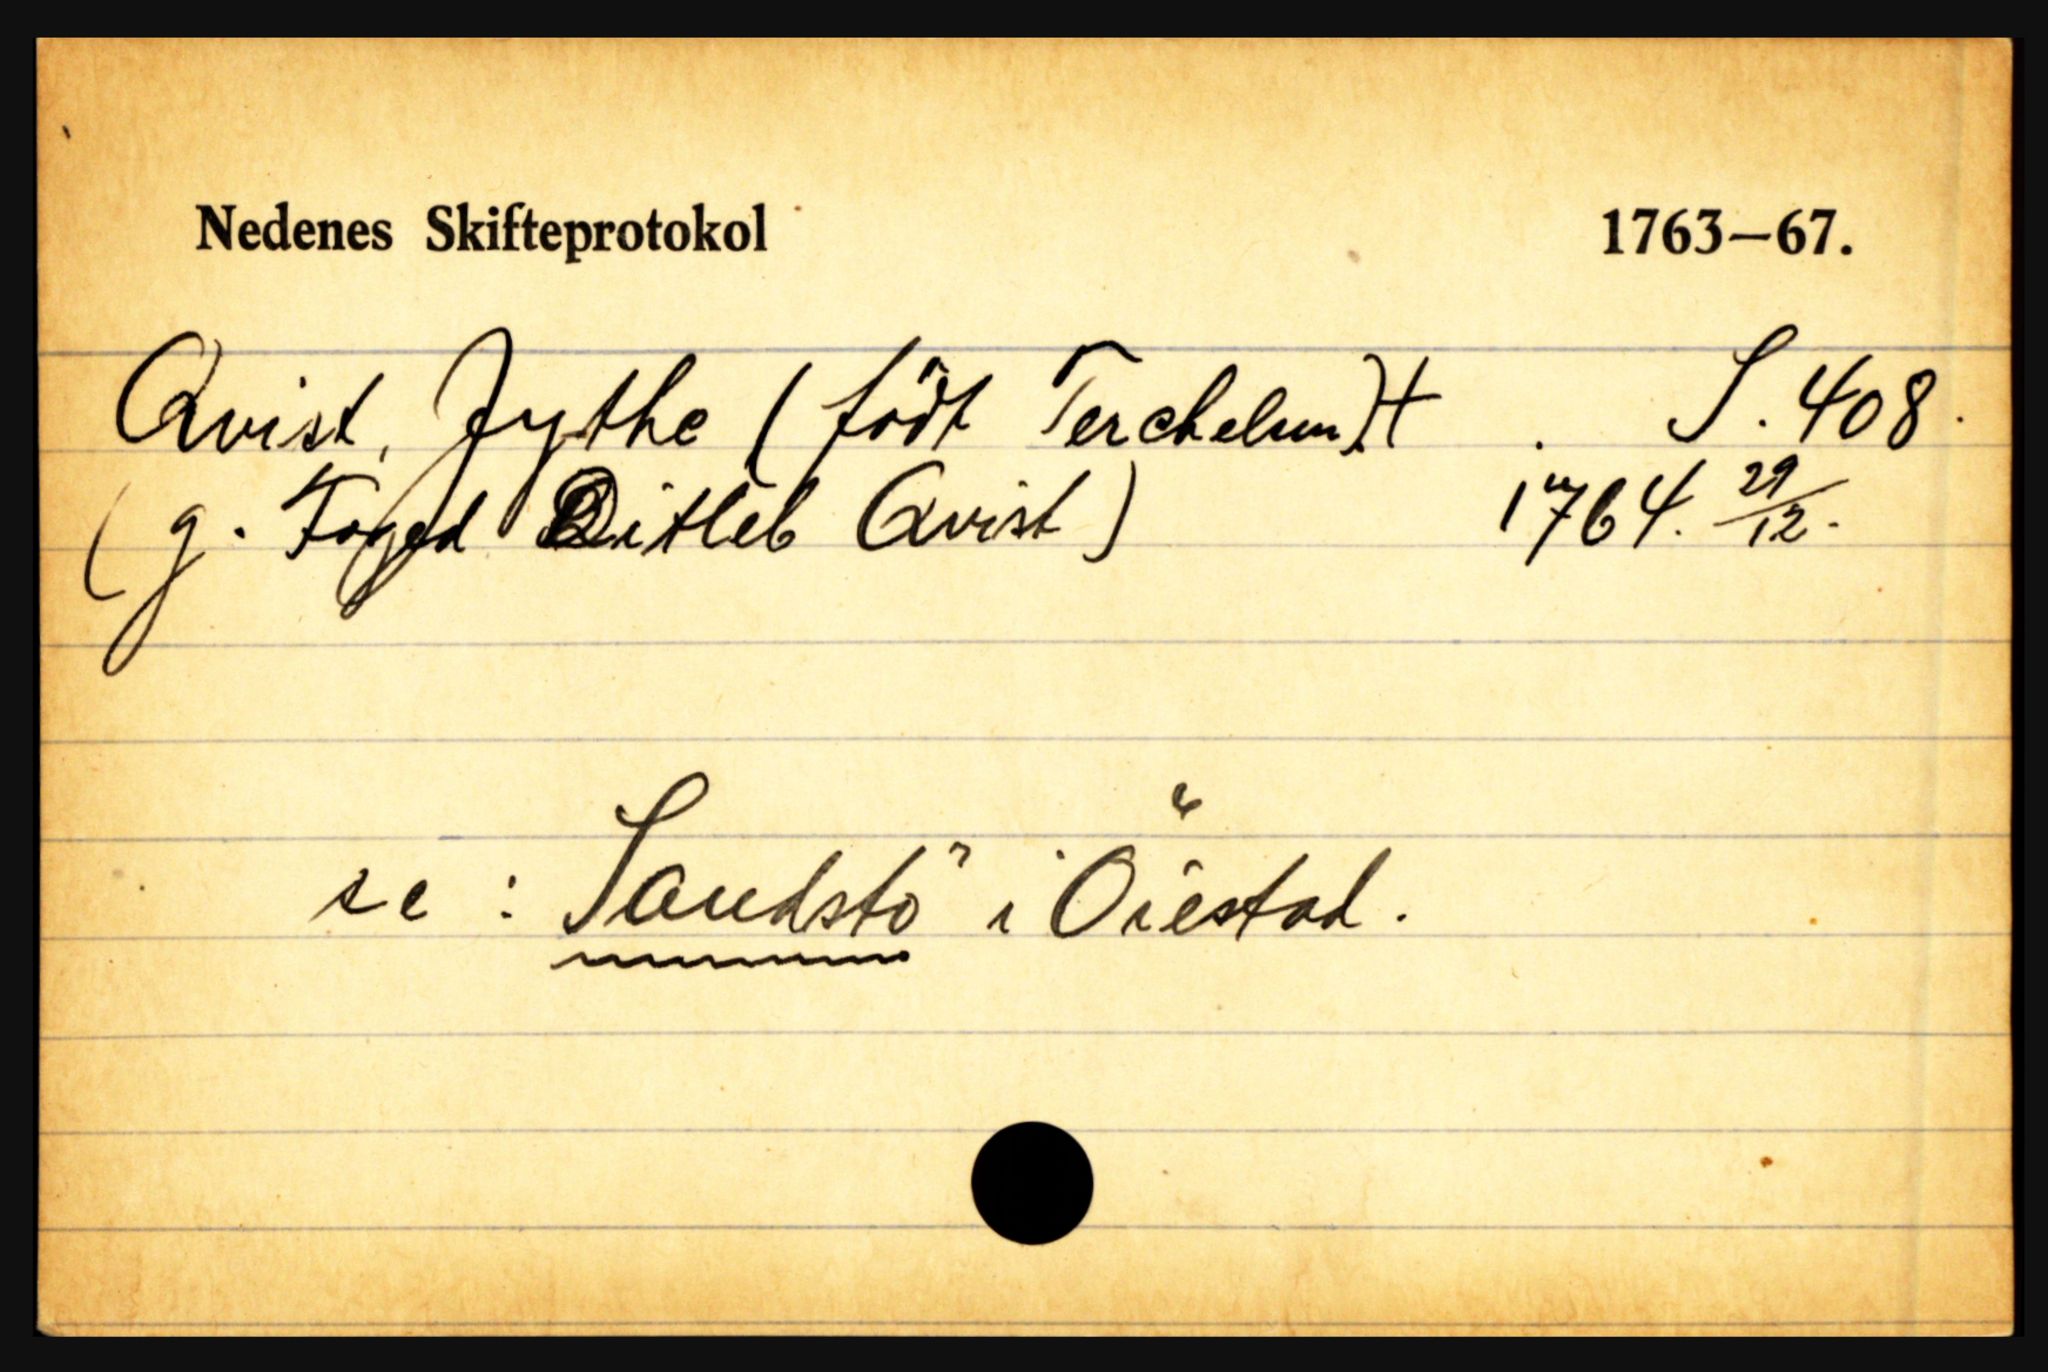 Nedenes Skifteprotokol 1763—67.
Qvist, Jythe (födt Terchelsen) S. 408.
(g. Foged Ditleb Qvist) 1764. 29/12.
se: Sandstö i Öiestad.